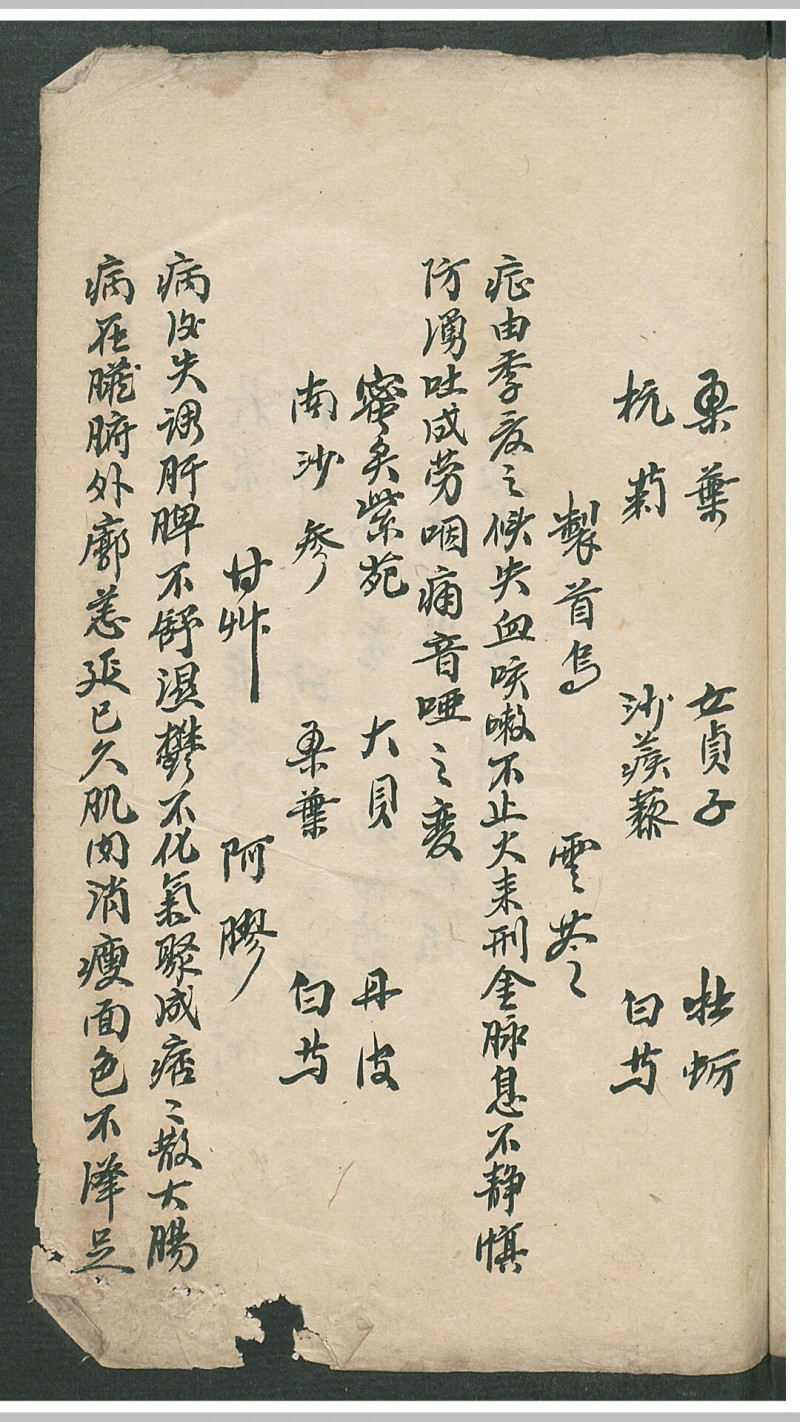 桑葉 女貞子 牡蛎
杭菊 沙蒺藜 白芍
製首烏 雲苓
症由季夏之候失血咳嗽不止火来刑金脉息不静慎
防湧吐成劳咽痛音啞之变
蜜炙紫苑 大貝 丹皮
南沙參 桑葉 白芍
甘艸 阿膠
病後失調肝脾不舒濕鬱不化氣聚成痞〻散大腸
病在臓腑外廓恙延已久肌肉消瘦面色不澤足